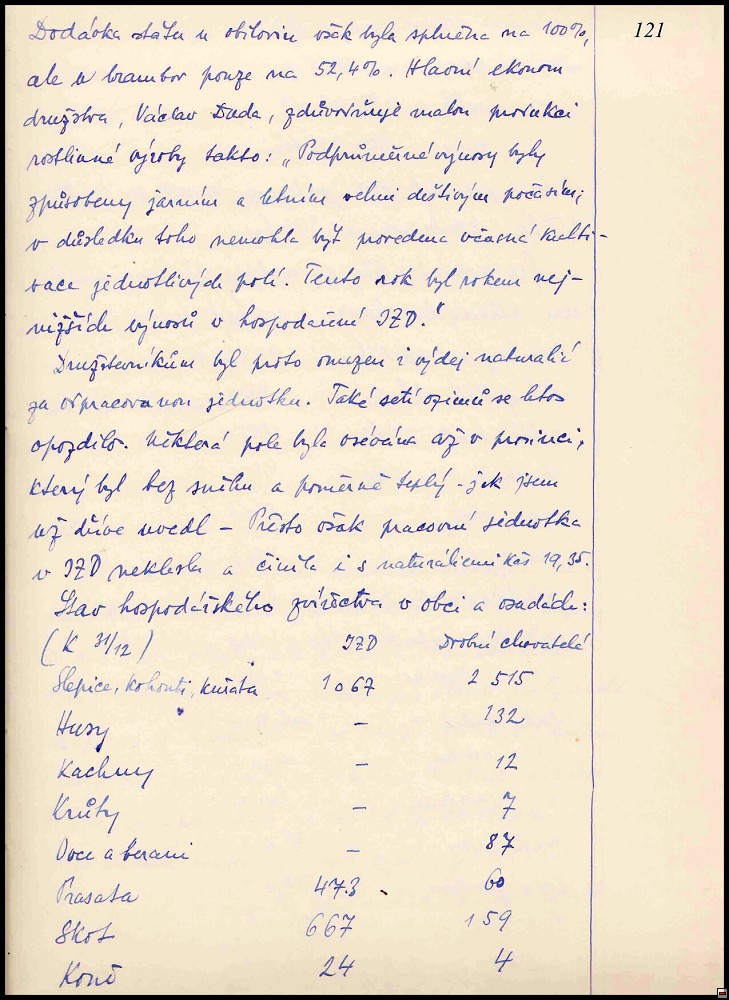 121
Dodávka státu u obilovin však byla splněna na 100%,
ale u brambor pouze na 52,4%. Hlavní ekonom
družstva, Václav Duda, zdůvodňuje malou produkci
rostlinné výroby takto: „Podprůměrné výnosy byly
způsobeny jarním a letním velmi deštivým počasím;
v důsledku toho nemohla být provedena včasná kulti-
vace jednotlivých polí. Tento rok byl rokem nej-
nižších výnosů v hospodaření JZD."
Družstevníkům byl proto omezen i výdej naturálií
za odpracovanou jednotku. Také setí ozimů se letos
opozdilo. Některá pole byla osévána až v prosinci,
který byl bez sněhu a poměrně teplý - jak jsem
už dříve uvedl - Přesto však pracovní jednotka
v JZD neklesla a činila i s naturáliemi Kčs 19,35.
Stav hospodářského zvířectva v obci a osadách:
(K 31/12) JZD Drobní chovatelé
Slepice, kohouti, kuřata 1 067 2 515
Husy – 132
Kachny – 12
Krůty – 7
Ovce a berani – 87
Prasata 473 60
Skot 667 159
Koně 24 4